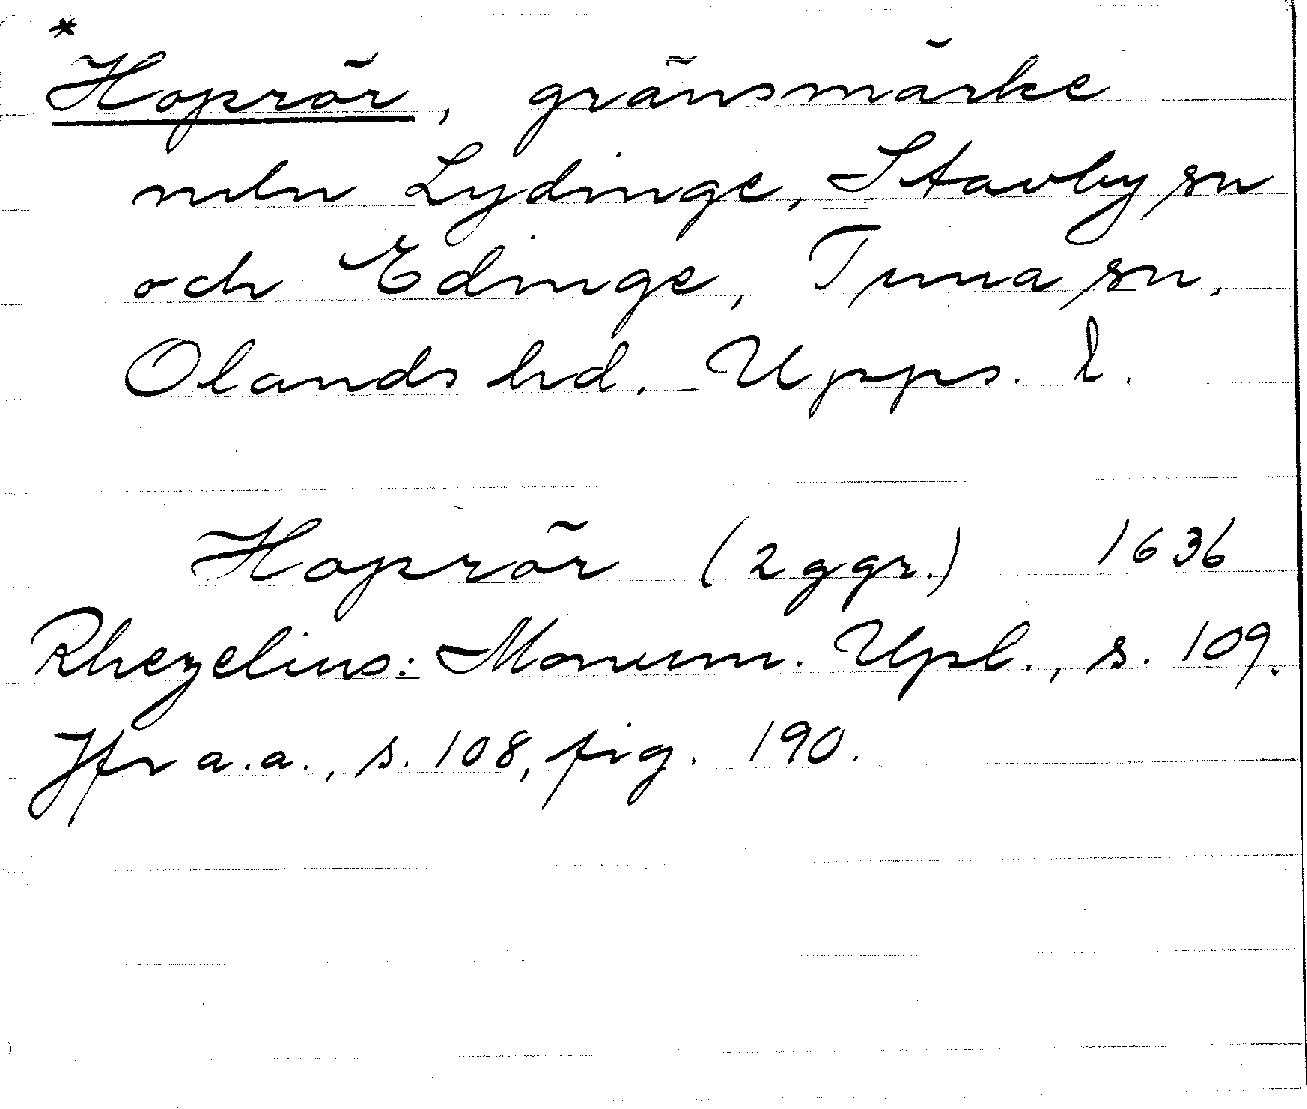 *
Hoprör, gränsmärke
mln Lydinge, Stavby sn
och Edinge, Tuna sn,
Olands hd. Upps. l.
Hoprör (2 ggr.) 1636
Rhezelius: Monum. Upl., s. 109.
Jfr a.a., s. 108, fig. 190.